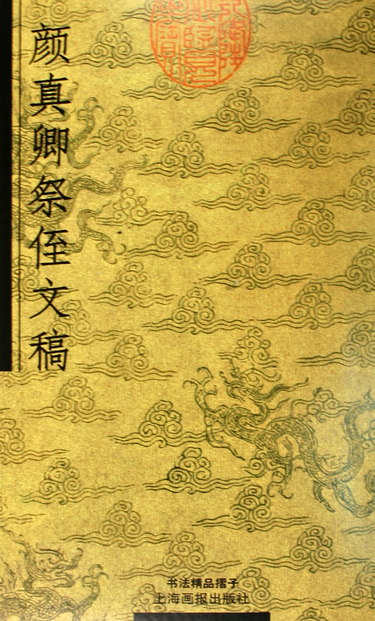 颜真卿祭侄文稿
书法精品摺子
上海画报出版社